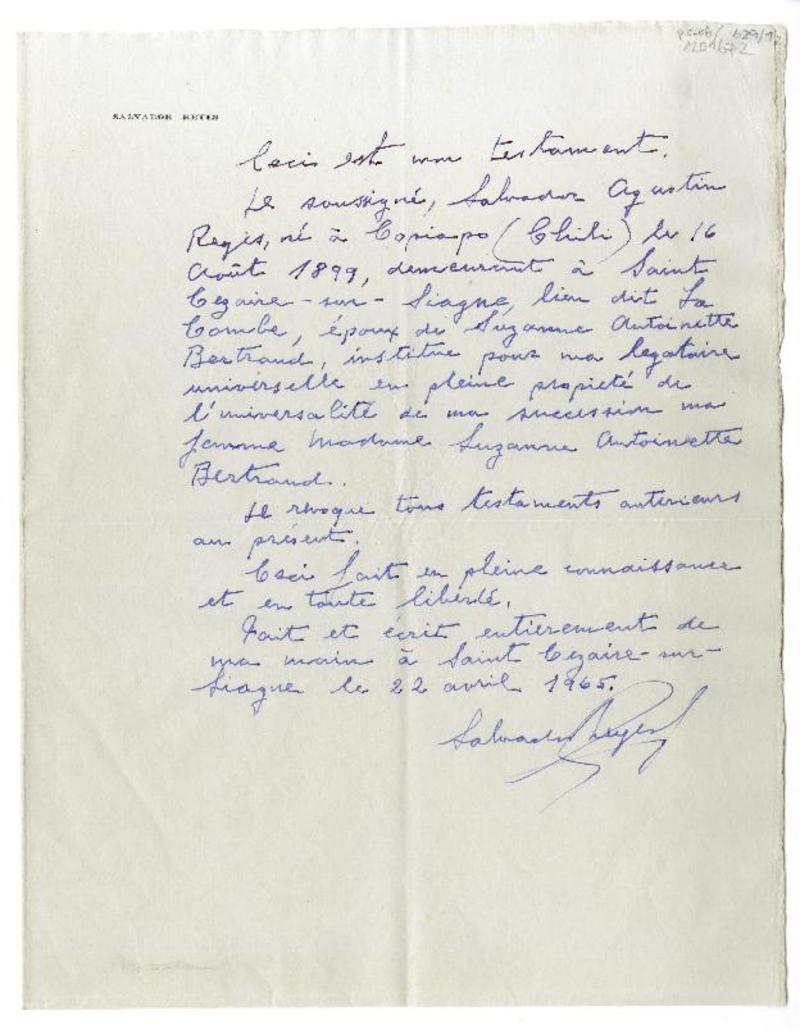 SALVADOR REYES
Ceci est mon testament.
Je soussigné, Salvador Agustin
Reyes, né à Copiapo (Chili) le 16
Août 1899, demeurant à Saint
Cezaire-sur-Siagne, lieu dit La
Combe, époux de Suzanne Antoinette
Bertrand, institue pour ma legataire
universelle en pleine propieté de
l'universalité de ma succession ma
femme Madame Suzanne Antoinette
Bertrand.
Je revoque tous testaments anterieurs
au présent.
Ceci fait en pleine connaissance
et en toute liberté.
Fait et écrit entierement de
ma main à Saint Cezaire-sur-
Siagne le 22 avril 1965.
Salvador Reyes